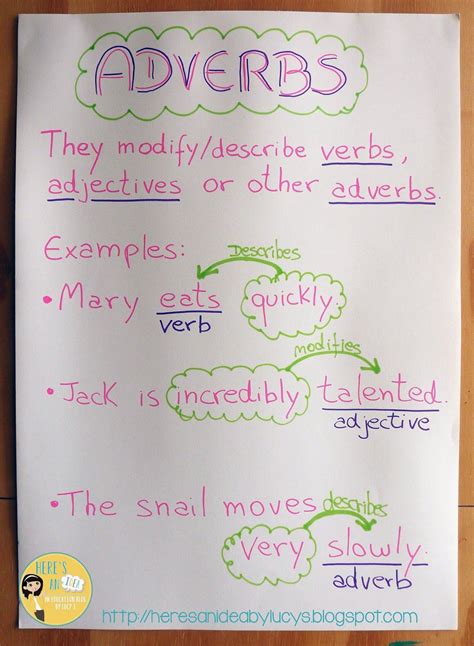 ADVERBS
They modify/describe verbs,
adjectives or other adverbs.
Examples:
Describes
•Mary eats quickly.
verb
modifies
•Jack is incredibly talented.
adjective
•The snail moves describes
very slowly.
adverb
HERE'S
AN IDEA
AN EDUCATION BLOG
BY LUCY S.
http://heresanideabylucys.blogspot.com